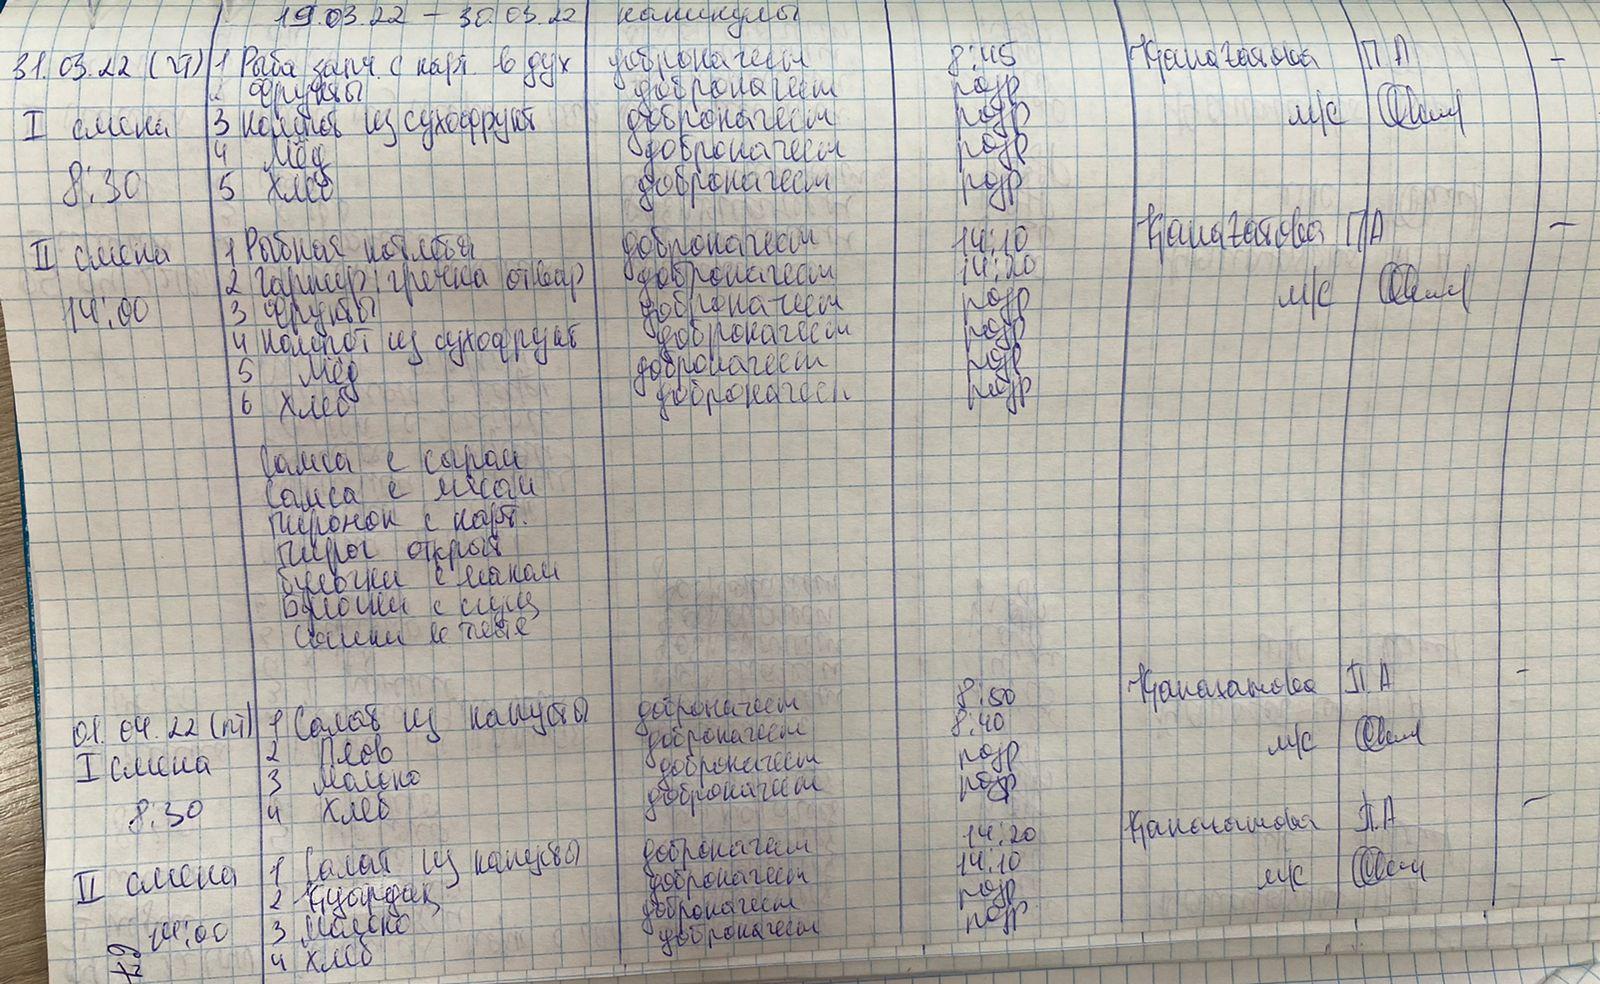 19.03.22 – 30.03.22 каникулы
31.03.22 (чт) 1 Рыба запч. с карт. в дух доброкачест 8:45 П А –
2 Фрукты доброкачест разр
I смена 3 Компот из сухофрукт доброкачест разр м/с
4 Мёд доброкачест разр
8:30 5 Хлеб доброкачест разр
II смена 1 Рыбная котлеты доброкачест 14:10 П А –
2 Гарнир: гречка отвар доброкачест 14:20 м/с
14:00 3 Фрукты доброкачест разр
4 Компот из сухофрукт доброкачест разр
5 Мёд доброкачест разр
6 Хлеб доброкачест разр
Самса с сыром
Самса с мясом
Пирожок с карт.
Пирог открыт
Булочки с маком
Булочки с сгущ
Сосиски в тесте
01.04.22 (пт) 1 Салат из капусты доброкачест 8:50 П.А –
I смена 2 Плов доброкачест 8:40 м/с
3 Молоко доброкачест разр
8:30 4 Хлеб доброкачест разр
II смена 1 Салат из капусты доброкачест 14:20 П.А –
2 Куырдак доброкачест 14:10 м/с
14:00 3 Молоко доброкачест разр
4 Хлеб доброкачест разр